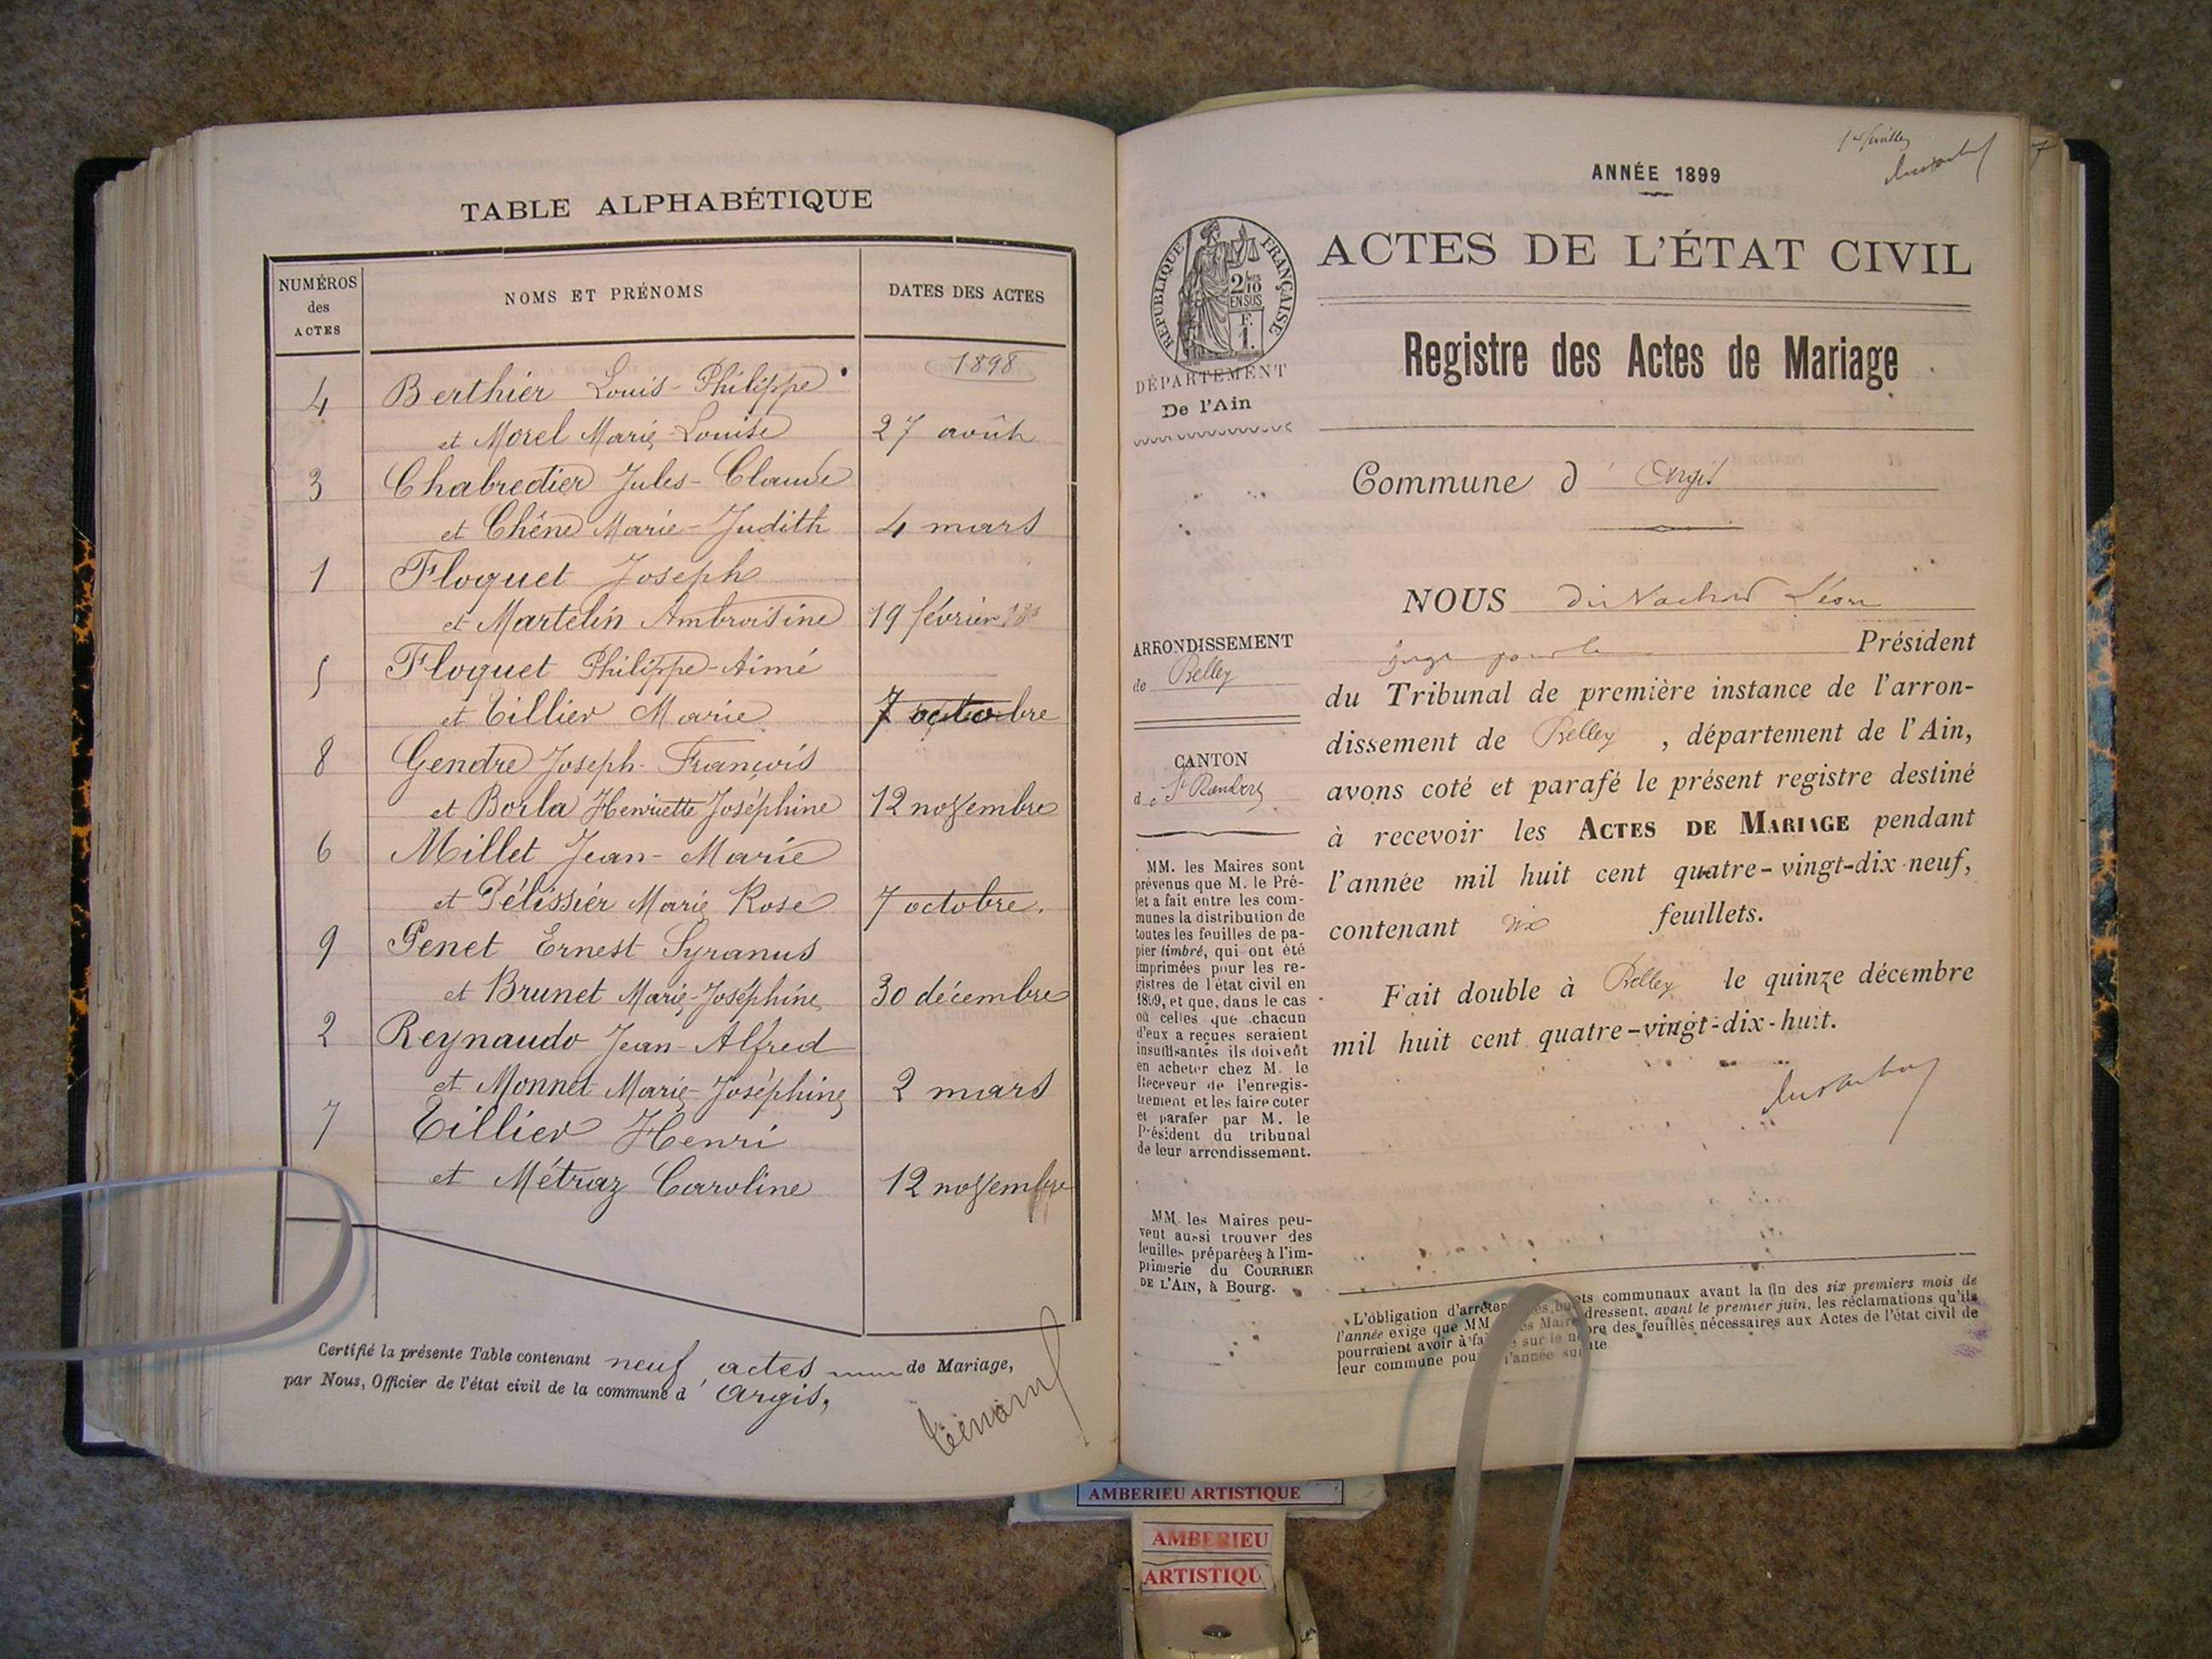 TABLE ALPHABÉTIQUE
NUMÉROS
des
ACTES
NOMS ET PRÉNOMS
DATES DES ACTES
1898
4 Berthier Louis-Philippe
et Morel Marie-Louise 27 août
3 Chabredier Jules-Claude
et Chêne Marie-Judith 4 mars
1 Floquet Joseph
et Martelin Ambroisine 19 février
5 Floquet Philippe-Aimé
et Tillier Marie 7 octobre
8 Gendre Joseph-François
et Borla Henriette Joséphine 12 novembre
6 Millet Jean-Marie
et Pélissier Marie Rose 7 octobre.
9 Penet Ernest Syranus
et Brunet Marie-Joséphine 30 décembre
2 Reynaudo Jean-Alfred
et Monnet Marie-Joséphine 2 mars
7 Tillier Henri
et Métraz Caroline 12 novembre
Certifié la présente Table contenant neuf actes de Mariage,
par Nous, Officier de l'état civil de la commune d'Argis,
1er feuillet
7
ANNÉE 1899
RÉPUBLIQUE FRANÇAISE
2/10
EN SUS
F.
1.
ACTES DE L'ÉTAT CIVIL
DÉPARTEMENT
De l'Ain
Registre des Actes de Mariage
Commune d'Argis
ARRONDISSEMENT
de Belley
CANTON
de St Rambert
MM. les Maires sont
prévenus que M. le Pré-
fet a fait entre les com-
munes la distribution de
toutes les feuilles de pa-
pier timbré, qui ont été
imprimées pour les re-
gistres de l'état civil en
1899, et que, dans le cas
où celles que chacun
d'eux a reçues seraient
insuffisantes ils doivent
en acheter chez M. le
Receveur de l'enregis-
trement et les faire coter
et parafer par M. le
Président du tribunal
de leur arrondissement.
MM. les Maires peu-
vent aussi trouver des
feuilles préparées à l'im-
primerie du COURRIER
DE L'AIN, à Bourg.
NOUS Léon
juge pour le Président
du Tribunal de première instance de l'arron-
dissement de Belley, département de l'Ain,
avons coté et parafé le présent registre destiné
à recevoir les ACTES DE MARIAGE pendant
l'année mil huit cent quatre-vingt-dix-neuf,
contenant feuillets.
Fait double à Belley le quinze décembre
mil huit cent quatre-vingt-dix-huit.
L'obligation d'arrêter les budgets communaux avant la fin des six premiers mois de
l'année exige que MM. les Maires dressent, avant le premier juin, les réclamations qu'ils
pourraient avoir à faire sur le nombre des feuilles nécessaires aux Actes de l'état civil de
leur commune pour l'année suivante
AMBERIEU ARTISTIQUE
AMBERIEU
ARTISTIQU